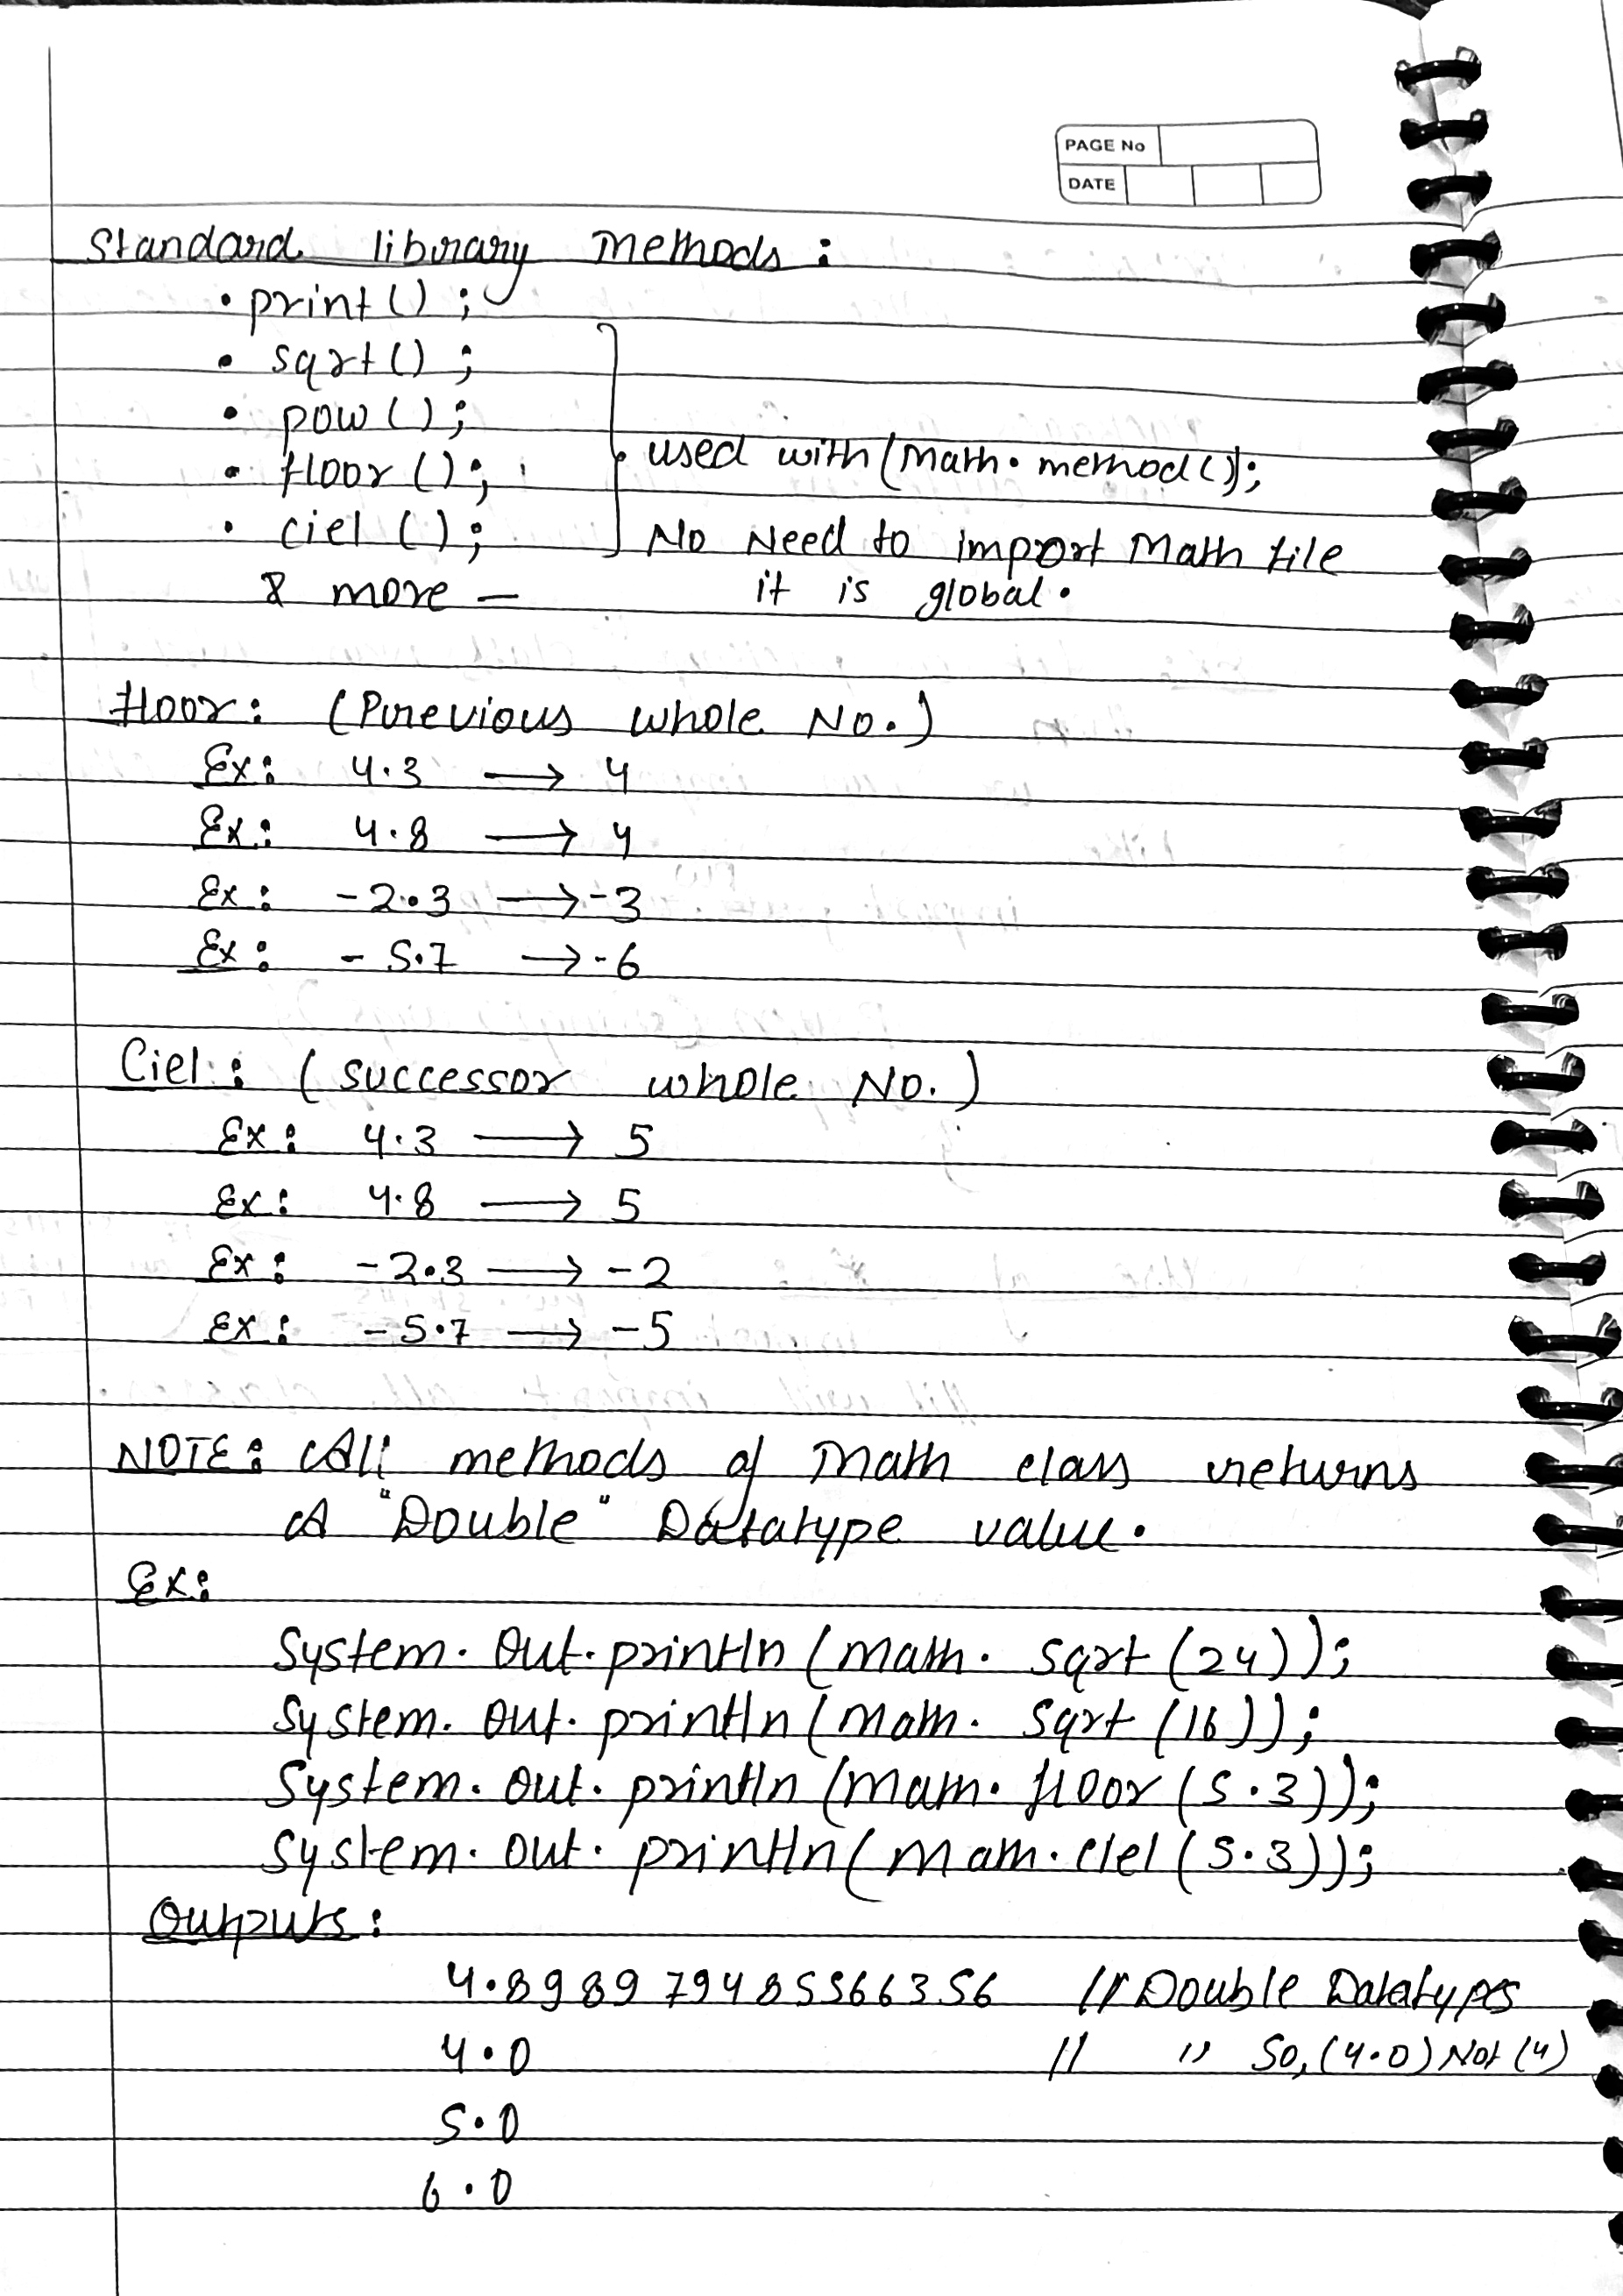 PAGE No
DATE
Standard library methods :
• print() ;
• sqrt() ;
• pow() ;
• floor() ;
• ciel() ;
& more —
used with (Math. method());
No Need to import Math file
it is global.
floor: (Previous whole No.)
Ex: 4.3 → 4
Ex: 4.8 → 4
Ex: -2.3 → -3
Ex: -5.7 → -6
Ciel : (successor whole No.)
Ex: 4.3 → 5
Ex: 4.8 → 5
Ex: -2.3 → -2
Ex: -5.7 → -5
NOTE: All methods of Math class returns
A "Double" Datatype value.
Ex:
System. Out. println (Math. sqrt (24));
System. Out. println (Math. sqrt (16));
System. Out. println (Math. floor (5.3));
System. Out. println (Math. ciel (5.3));
Outputs :
4.898979485566356 // Double Datatypes
4.0 // " So, (4.0) Not (4)
5.0
6.0